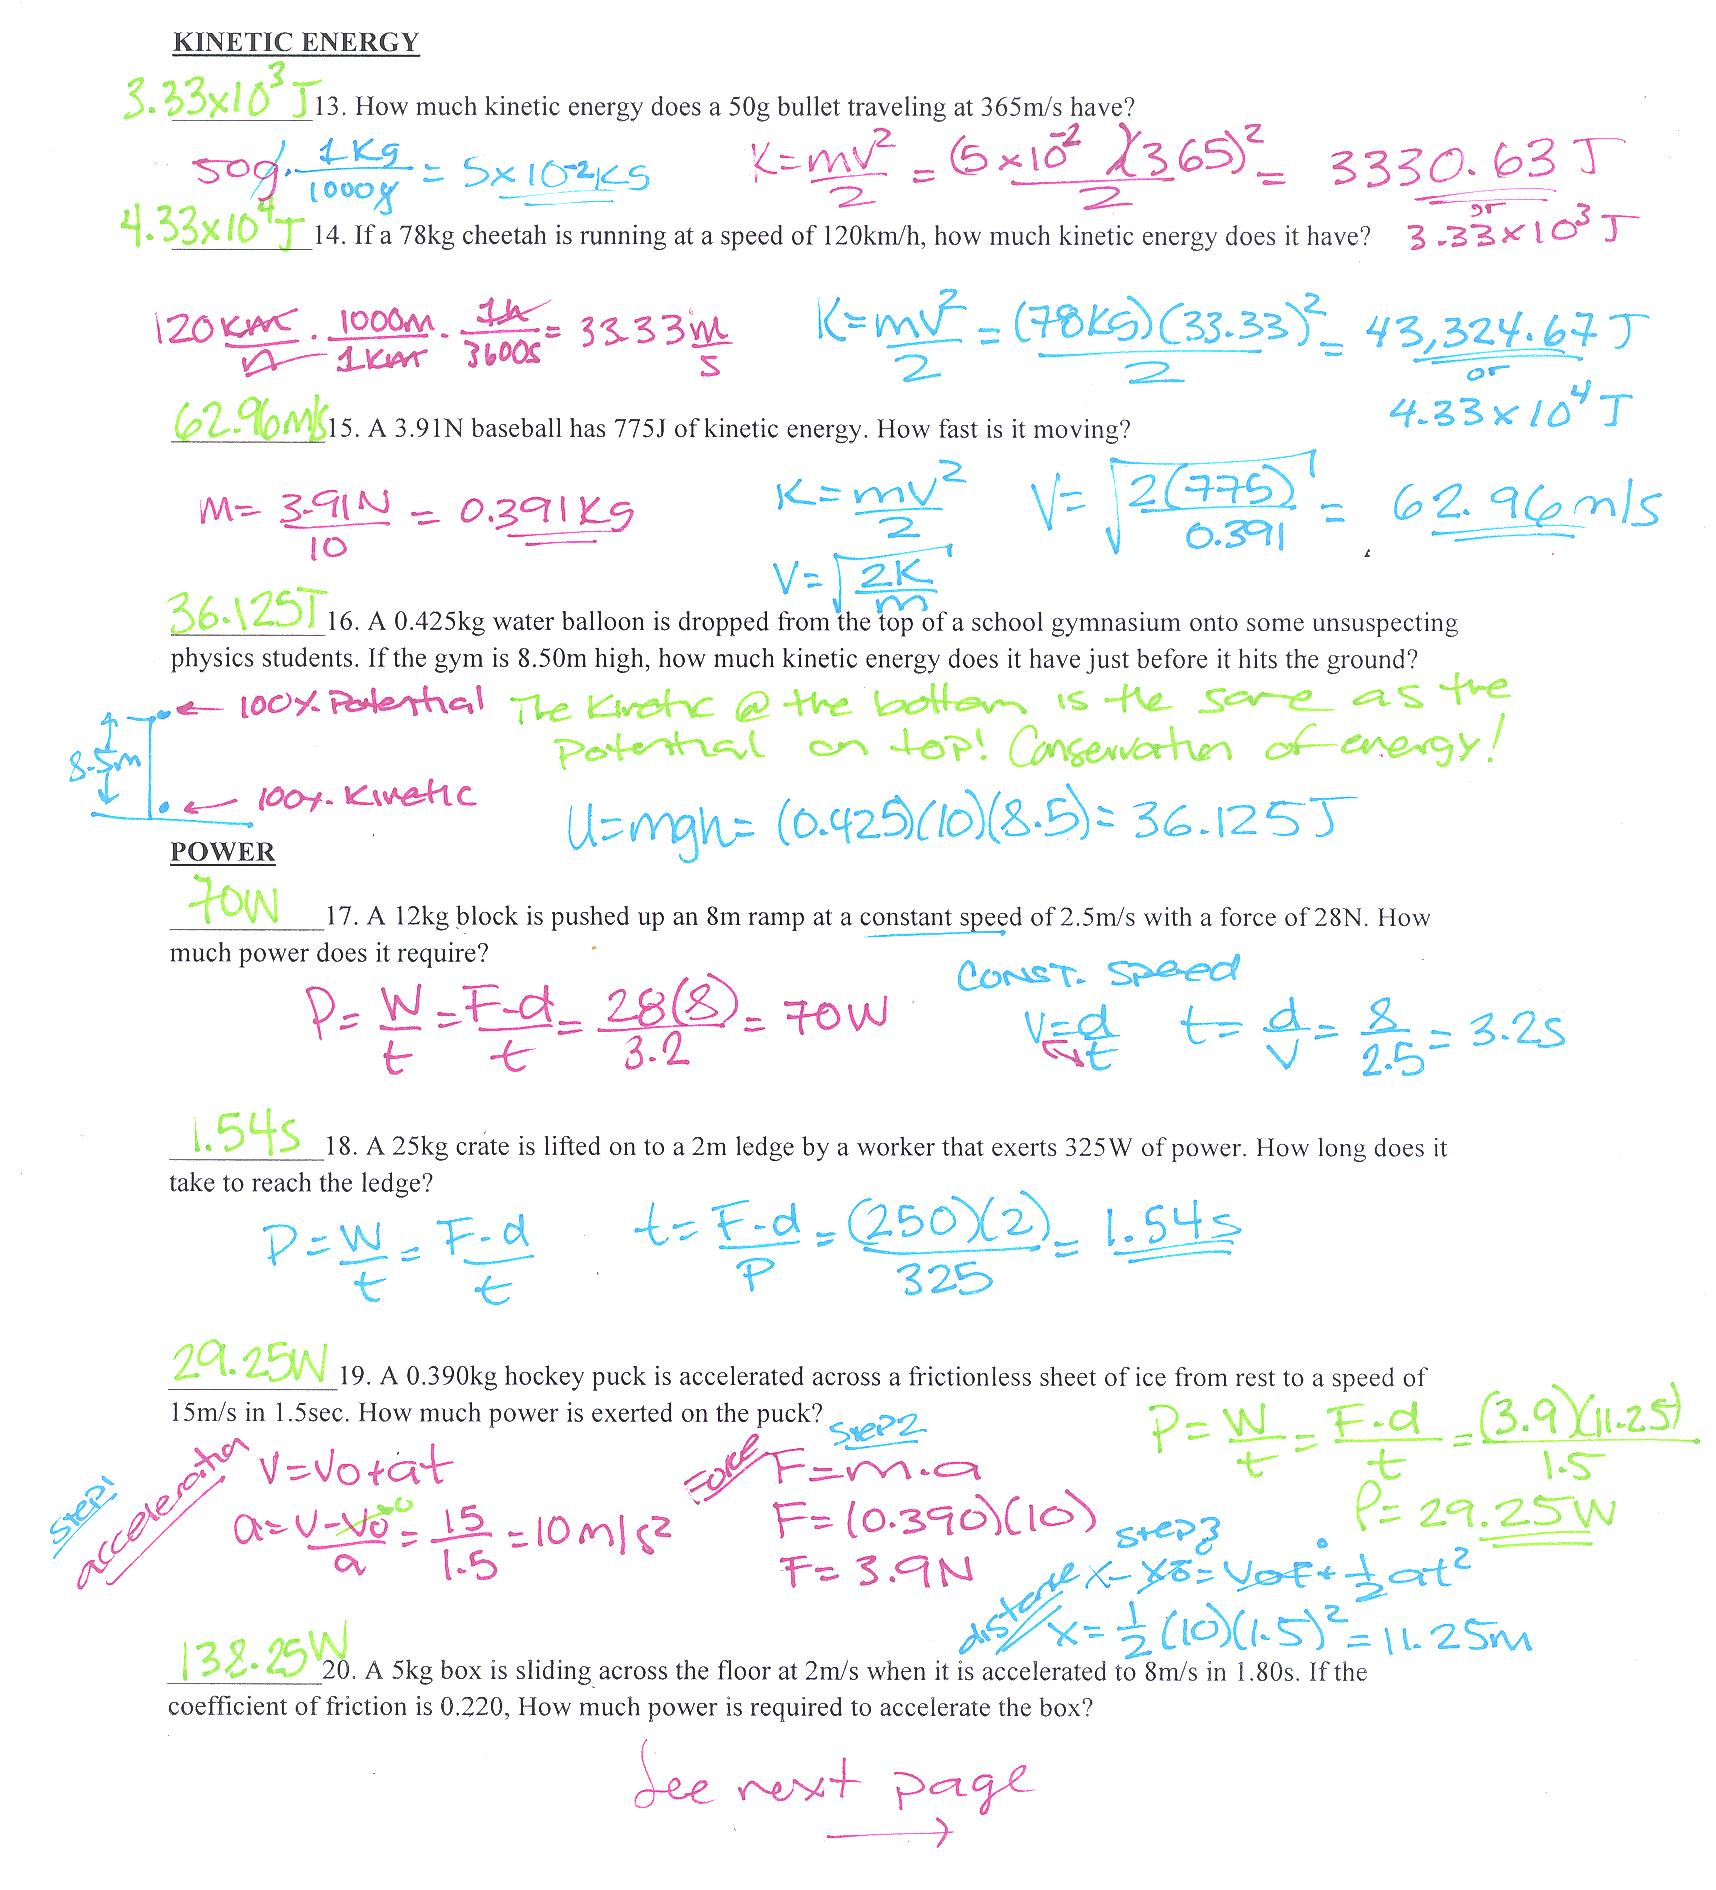 KINETIC ENERGY
3.33x10³ J 13. How much kinetic energy does a 50g bullet traveling at 365m/s have?
50g · 1kg/1000g = 5x10⁻² kg
K = mv²/2 = (5x10⁻²)(365)²/2 = 3330.63 J
or
3.33x10³ J
4.33x10⁴ J 14. If a 78kg cheetah is running at a speed of 120km/h, how much kinetic energy does it have?
120 km/h · 1000m/1km · 1h/3600s = 33.33 m/s
K = mv²/2 = (78kg)(33.33)²/2 = 43,324.67 J
or
4.33x10⁴ J
62.96m/s 15. A 3.91N baseball has 775J of kinetic energy. How fast is it moving?
m = 3.91N/10 = 0.391kg
K = mv²/2
V = √(2K/m)
V = √(2(775)/0.391) = 62.96 m/s
36.125J 16. A 0.425kg water balloon is dropped from the top of a school gymnasium onto some unsuspecting
physics students. If the gym is 8.50m high, how much kinetic energy does it have just before it hits the ground?
← 100% Potential
8.5m
← 100% Kinetic
The Kinetic @ the bottom is the same as the
Potential on top! Conservation of energy!
U = mgh = (0.425)(10)(8.5) = 36.125J
POWER
70W 17. A 12kg block is pushed up an 8m ramp at a constant speed of 2.5m/s with a force of 28N. How
much power does it require?
P = W/t = F·d/t = 28(8)/3.2 = 70W
CONST. Speed
V = d/t t = d/V = 8/2.5 = 3.2s
1.54s 18. A 25kg crate is lifted on to a 2m ledge by a worker that exerts 325W of power. How long does it
take to reach the ledge?
P = W/t = F·d/t
t = F·d/P = (250)(2)/325 = 1.54s
29.25W 19. A 0.390kg hockey puck is accelerated across a frictionless sheet of ice from rest to a speed of
15m/s in 1.5sec. How much power is exerted on the puck?
Step 1
acceleration
V = Vo + at
a = V-Vo/a = 15/1.5 = 10m/s²
0
Step 2
Force
F = m·a
F = (0.390)(10)
F = 3.9N
P = W/t = F·d/t = (3.9)(11.25)/1.5
P = 29.25W
Step 3
distance
X - Xo = Vot + ½at²
X = ½(10)(1.5)² = 11.25m
138.25W 20. A 5kg box is sliding across the floor at 2m/s when it is accelerated to 8m/s in 1.80s. If the
coefficient of friction is 0.220, How much power is required to accelerate the box?
See next page
→